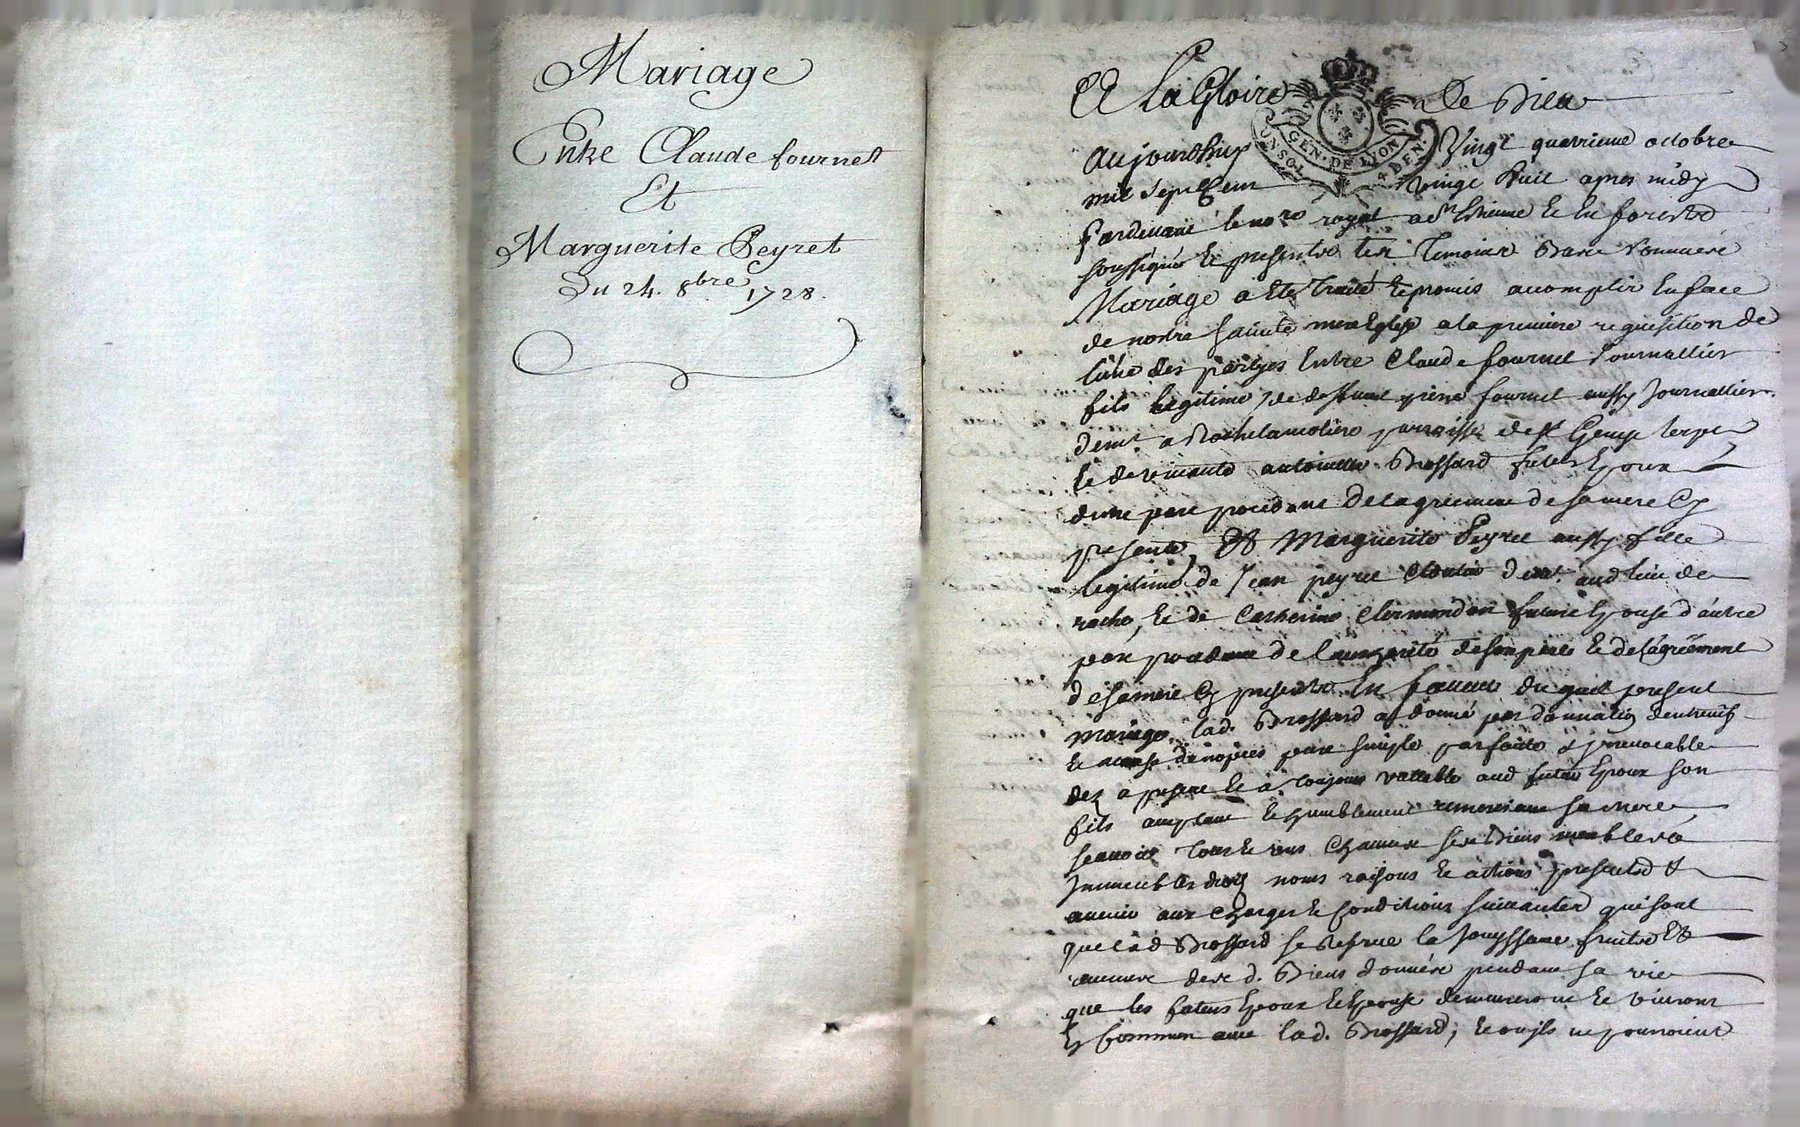 Mariage
Entre Claude fournet
Et
Marguerite Peyret
Du 24. 8bre 1728.
A La Gloire De Dieu
GEN. DE LYON
4 DEN.
Aujourdhuy Vingt quatrieme octobre
mil sept Cent vingt huit apres midy
Pardevant le nore royal a St Etienne
soussigné Et presents les Temoins
Mariage a Eté Traité Et promis accomplir En face
de nostre sainte mere Eglise a la premiere requisition de
l'une des partyes Entre Claude fournet Journallier
fils legitime de deffunt pierre fournet aussy Journallier
demt a Rochelamoliere parroisse de St Genys terre
Et de vivante antoinette Brossard futur Epoux
d'une part procedant De lagrement de sa mere Cy
presente, Et Marguerite Peyret aussy fille
legitime de Jean peyret Cloutier demt aud lieu de
roche, Et de Catherine Clermondon future Epouse d'autre
part procedant de l'authorité de son pere Et de l'agréement
de sa mere Cy presents En faveur du quel present
mariage lad. Brossard a donné par donnation d'entrevifs
Et a cause de nopces pure simple parfaite & irrevocable
des a present Et a Toujours vallable aud futur Epoux son
fils acceptant Et humblement remerciant sa mere
scavoir Tous Et uns Chacuns ses Biens meubles Et
Immeubles droits noms raisons Et actions presents Et
avenir aux Charges Et Conditions suivantes qui sont
que lad Brossard se Reserve la Jouyssance fruits Et
revenus desd. Biens donnés pendant sa vie
que les futurs Epoux Et Epouse demeureront Et vivront
En Commun avec lad. Brossard; Et ou ils ne pourroient